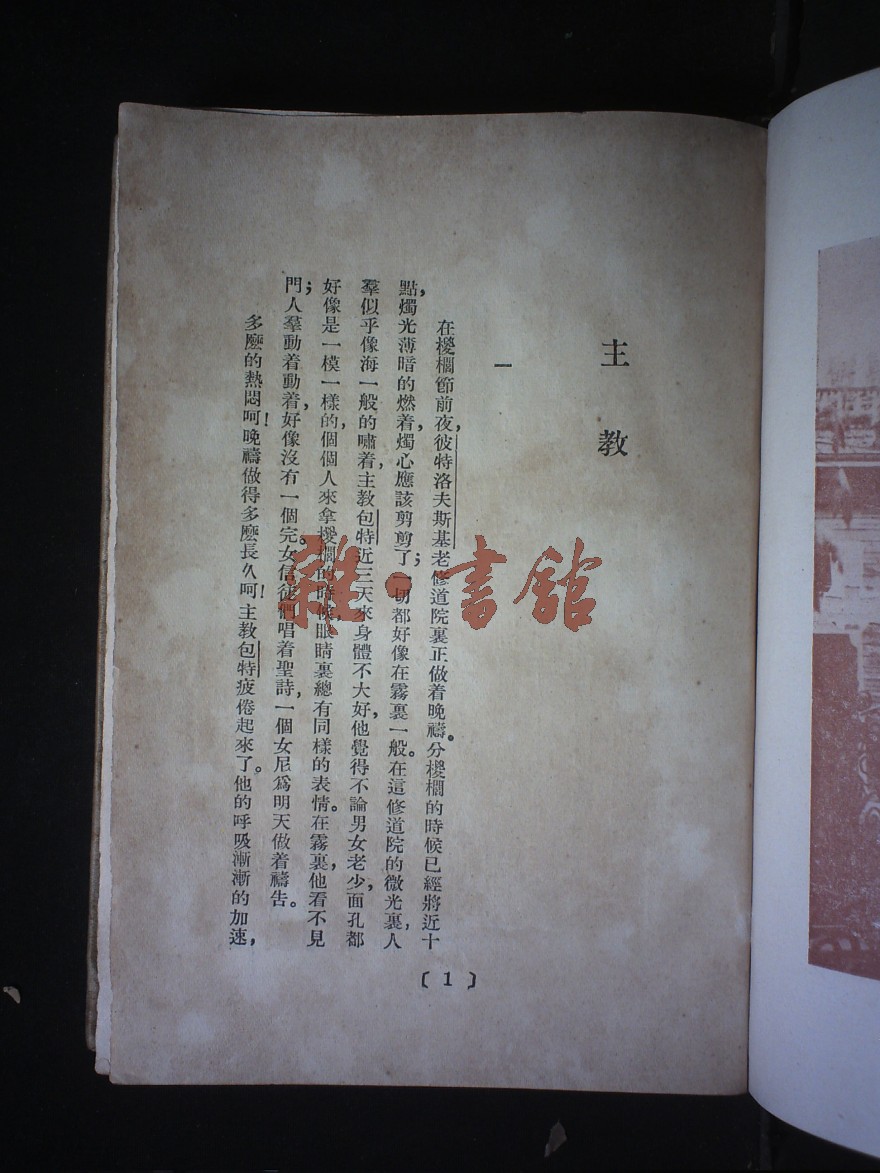 主教
一
在椶櫚節前夜，彼特洛夫斯基老修道院裏正做着晚禱。分椶櫚的時候已經將近十
點，燭光薄暗的燃着，燭心應該剪剪了；一切都好像在霧裏一般。在這修道院的微光裏，人
羣似乎像海一般的嘯着，主教包特近三天來身體不大好，他覺得不論男女老少，面孔都
好像是一模一樣的，個個人來拿椶櫚的時候，眼睛裏總有同樣的表情。在霧裏，他看不見
門；人羣動着動着，好像沒有一個完。女信徒們唱着聖詩，一個女尼爲明天做着禱告。
多麽的熱悶呵！晚禱做得多麽長久呵！主教包特疲倦起來了。他的呼吸漸漸的加速，
〔1〕
雜·書館